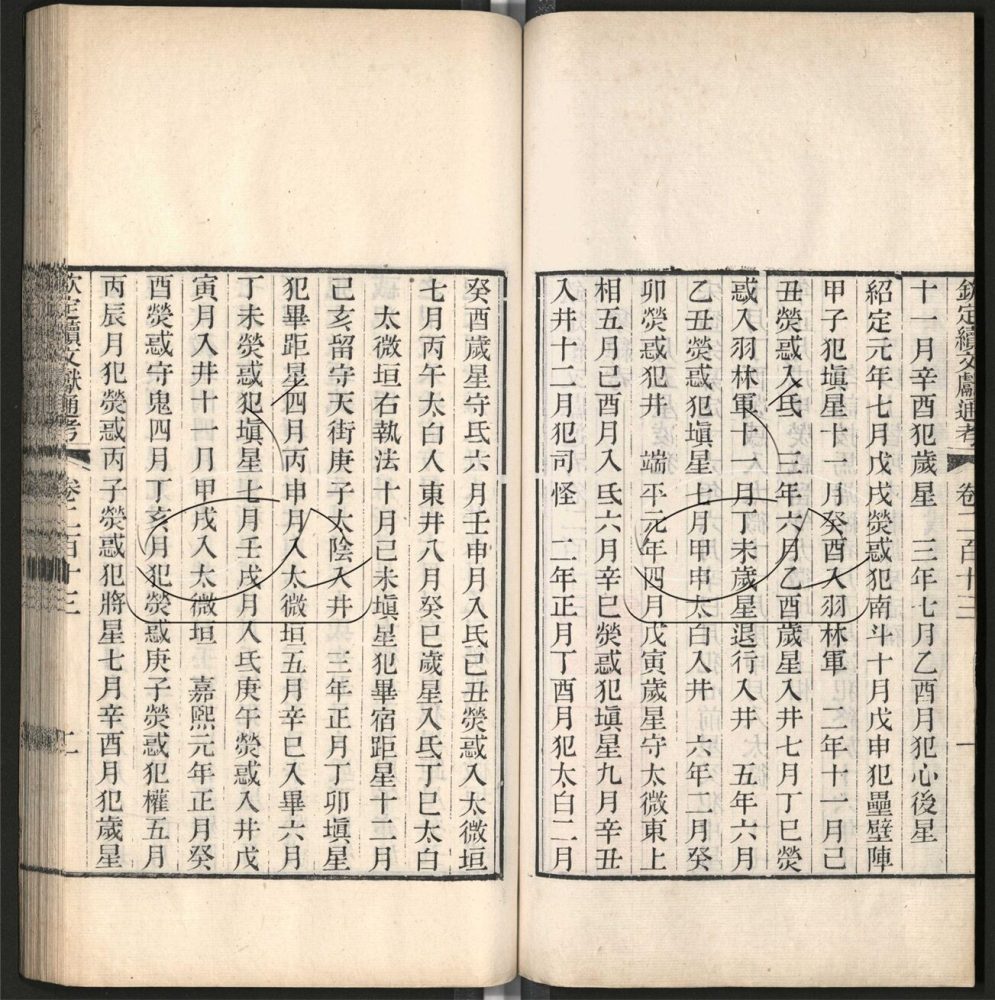 欽定續文獻通考 卷二百十三 一
十一月辛酉犯歲星 三年七月乙酉月犯心後星
紹定元年七月戊戌熒惑犯南斗十月戊申犯壘壁陣
甲子犯塡星十一月癸酉入羽林軍 二年十一月己
丑熒惑入氐 三年六月乙酉歲星入井七月丁巳熒
惑入羽林軍十一月丁未歲星退行入井 五年六月
乙丑熒惑犯塡星七月甲申太白入井 六年二月癸
卯熒惑犯井 端平元年四月戊寅歲星守太微東上
相五月己酉月入氐六月辛巳熒惑犯塡星九月辛丑
入井十二月犯司怪 二年正月丁酉月犯太白二月
癸酉歲星守氐六月壬申月入氐己丑熒惑入太微垣
七月丙午太白入東井八月癸巳歲星入氐丁巳太白
太微垣右執法十月己未塡星犯畢宿距星十二月
己亥留守天街庚子太陰入井 三年正月丁卯塡星
犯畢距星四月丙申月入太微垣五月辛巳入畢六月
丁未熒惑犯塡星七月壬戌月入氐庚午熒惑入井戊
寅月入井十一月甲戌入太微垣 嘉熙元年正月癸
酉熒惑守鬼四月丁亥月犯熒惑庚子熒惑犯權五月
丙辰月犯熒惑丙子熒惑犯將星七月辛酉月犯歲星
欽定續文獻通考 卷二百十三 二